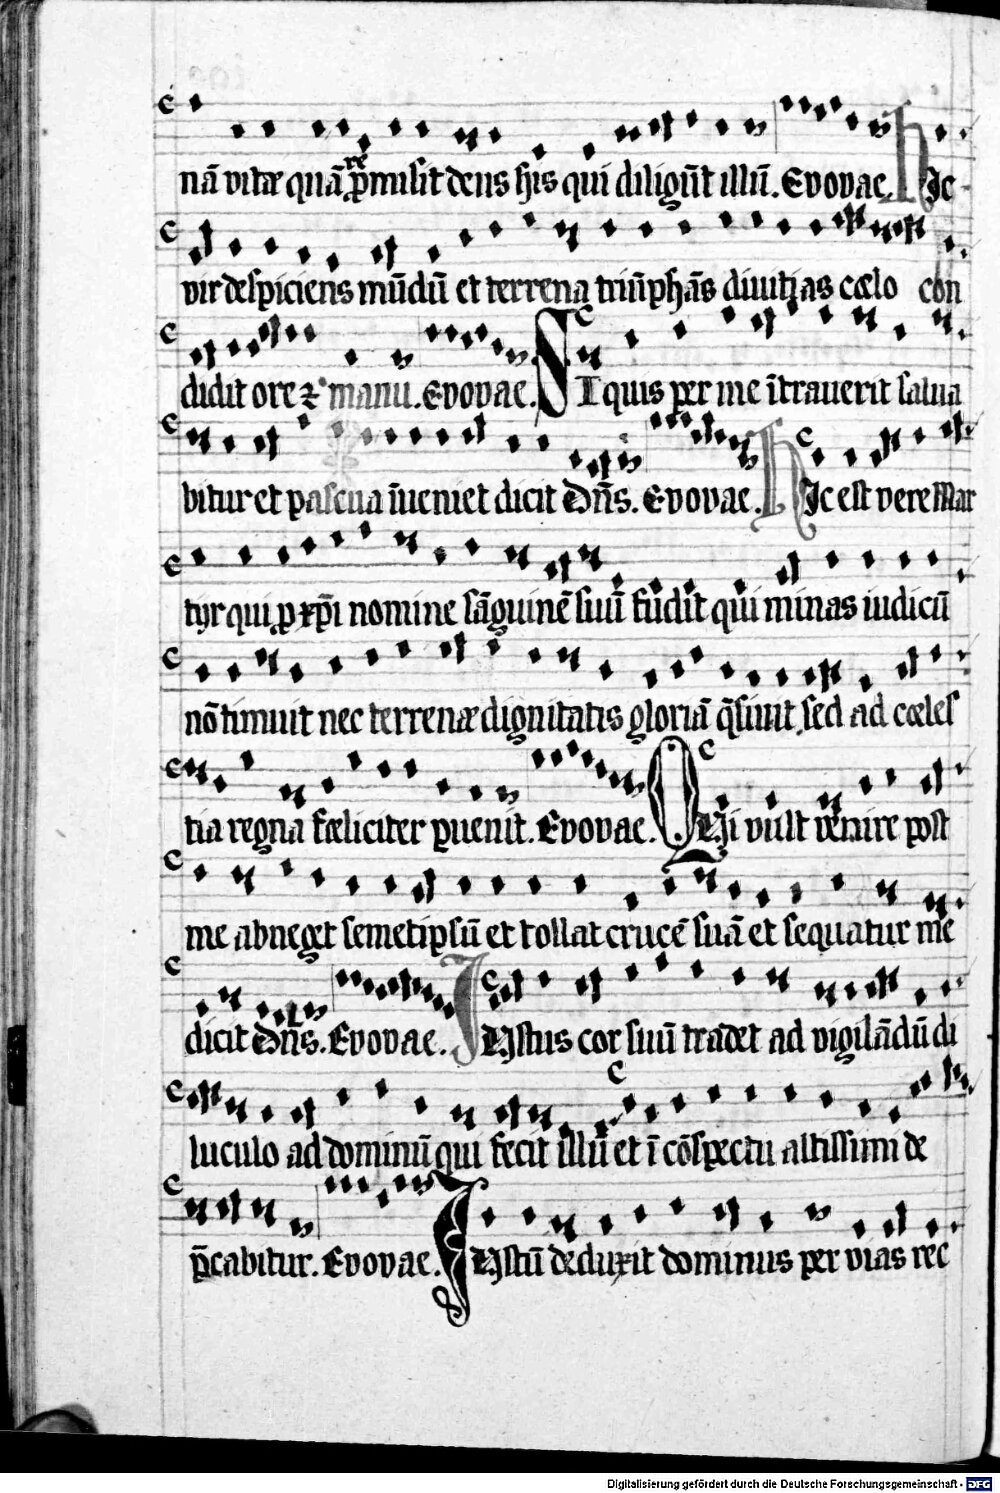 nā vitæ quā ꝓmisit deus his qui diligūt illū. Evovae. Hic
vir despiciens mūdū et terrena triūphās diuitias cœlo con
didit ore ⁊ manu. Evovae. SI quis per me ītrauerit salua
bitur et pascua īueniet dicit Dn̄s. Evovae. HIc est vere Mar
tyr qui ꝓ xp̄i nomine sāguinē suū fudit qui minas iudicū
nō timuit nec terrenæ dignitatis gloriā q̄siuit, sed ad cœles
tia regna fœliciter ꝑuenit. Evovae. QUi vult venire post
me abneget semetipsū et tollat crucē suā et sequatur me
dicit Dn̄s. Evovae. IUstus cor suū tradet ad vigilādū di
luculo ad dominū qui fecit illū et ī cōspectu altissimi de
p̄cabitur. Evovae. IUstū deduxit dominus per vias rec
Digitalisierung gefördert durch die Deutsche Forschungsgemeinschaft - DFG